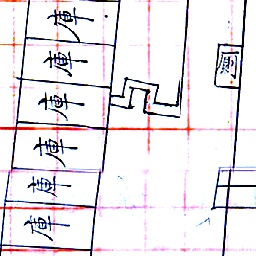 庫
庫
庫
庫
庫
庫